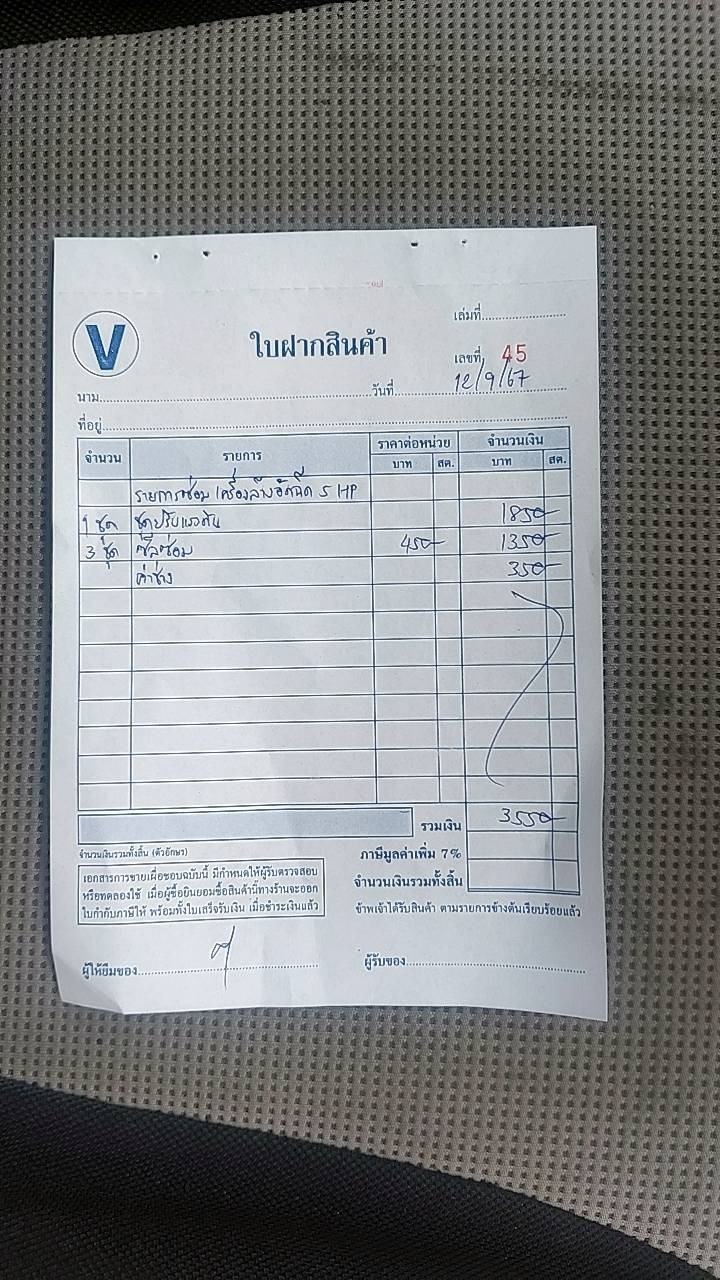 V
ใบฝากสินค้า
เล่มที่
เลขที่ 45
นาม
วันที่ 12/9/67
ที่อยู่
จำนวน รายการ ราคาต่อหน่วย จำนวนเงิน
บาท สต. บาท สต.
รายการซ่อม เครื่องล้างอัดฉีด 5 HP
1 ชุด ชุดปรับแรงดัน 1850-
3 ชุด ซีลซ่อม 450- 1350-
ค่าช่าง 350-
รวมเงิน 3550-
จำนวนเงินรวมทั้งสิ้น (ตัวอักษร)
ภาษีมูลค่าเพิ่ม 7%
จำนวนเงินรวมทั้งสิ้น
เอกสารการขายเผื่อชอบฉบับนี้ มีกำหนดให้ผู้รับตรวจสอบ
หรือทดลองใช้ เมื่อผู้ซื้อยินยอมซื้อสินค้านี้ทางร้านจะออก
ใบกำกับภาษีให้ พร้อมทั้งใบเสร็จรับเงิน เมื่อชำระเงินแล้ว
ข้าพเจ้าได้รับสินค้า ตามรายการข้างต้นเรียบร้อยแล้ว
ผู้ให้ยืมของ
ผู้รับของ